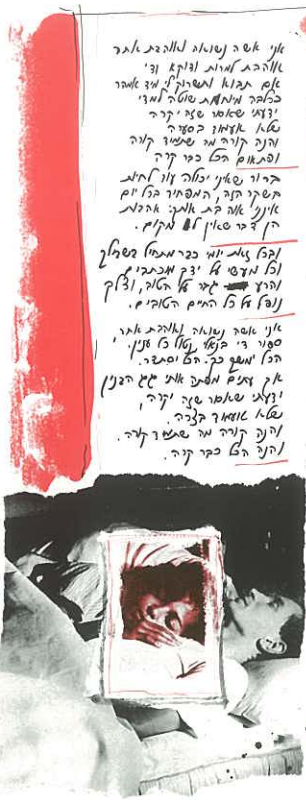 אני אשה נשואה ואוהבת אחר
אוהבת למרות ודווקא ודי
אם תבוא ותשרוק לי מיד אמהר
ככלבה מיוחמת שוטה למדי
ידעתי שאסור שזה יקרה
שלא אעמוד בסערה
והנה קורה מה שתמיד קורה
ופתאום הכל כבר קרה
ברור שאני יכולה עוד לחיות
בשקר הזה, המפחיד בכל יום
אינני אוהבת אותך: אהבות
הן דבר שאין לו מקום.
ובכל זאת יומי כבר מתחיל בשבילך
וכל מעשי על ידך מוכתבים
והרע גבר על הטוב, וצלך
נופל על כל החיים הטובים.
אני אשה נשואה ואוהבת אחר,
ספור די בנאלי, נטול כל ענין.
הכל ימשך כך. הכל יסתדר.
אך עתים מפתה אותי גג הבנין
ידעתי שאסור שזה יקרה,
שלא אעמוד בצרה.
והנה קורה מה שתמיד קורה.
והנה הכל כבר קרה.